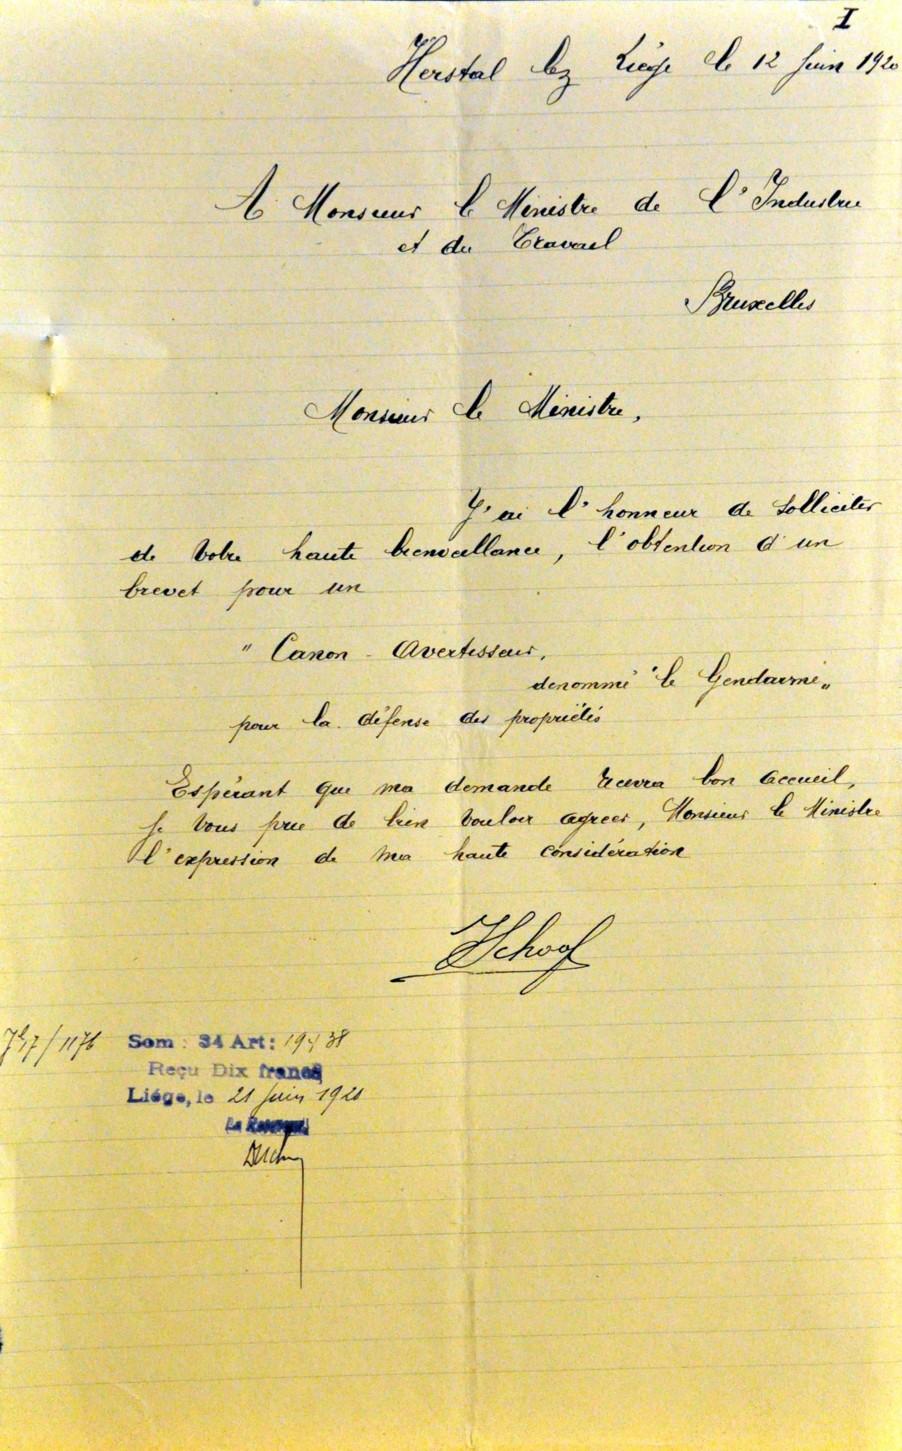 I
Herstal lez Liége le 12 juin 1920
A Monsieur le Ministre de l'Industrie
et du Travail
Bruxelles
Monsieur le Ministre,
J'ai l'honneur de solliciter
de Votre haute bienveillance, l'obtention d'un
brevet pour un
" Canon - Avertisseur,
denommé "le Gendarme"
pour la défense des propriétés
Espérant que ma demande recevra bon accueil,
je Vous prie de bien Vouloir agréer, Monsieur le Ministre
l'expression de ma haute considération
Schoof
Som : 34 Art:
Reçu Dix francs
Liége, le 21 juin 1920